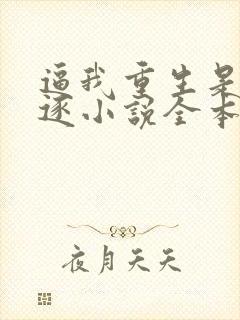 逼我重生是
逐小说全本
夜月天天